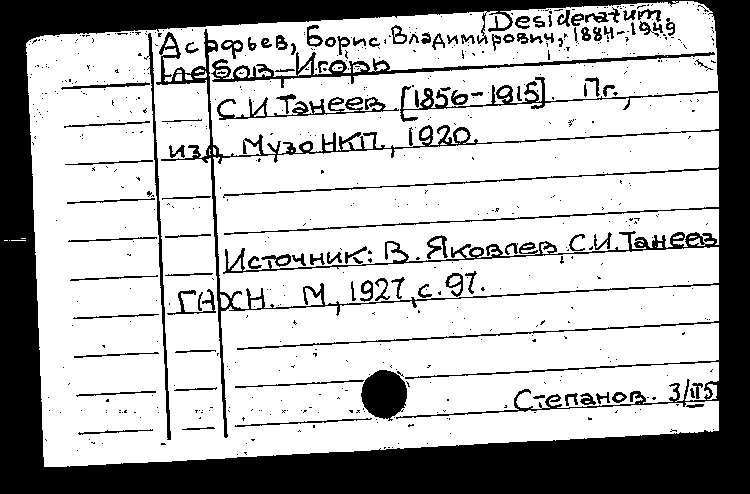 Desideratum.
Асафьев, Борис Владимирович, 1884-1949
Глебов, Игорь
С.И. Танеев [1856-1915]. Пг.,
изд. Музо НКП., 1920.
Источник: В. Яковлев, С.И. Танеев
ГАХН. М., 1927, с. 97.
Степанов. 3/II 5